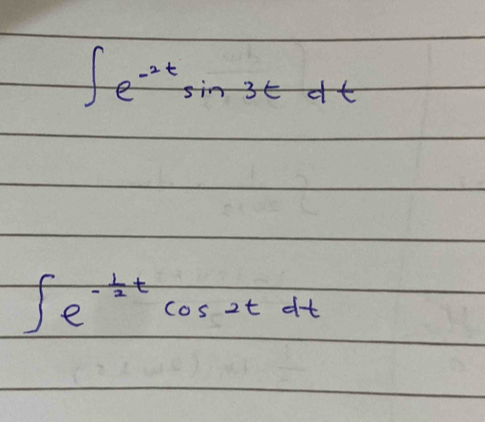 ∫ e^{-2t} sin 3t dt
∫ e^{-\frac{1}{2}t} cos 2t dt